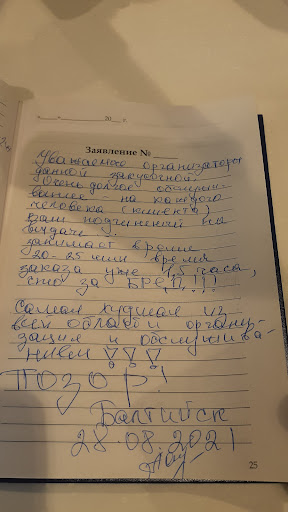 « » 20 г.
Заявление №
Уважаемые организаторы
данной закусочной.
Очень долгое обслужи-
вание - на каждого
человека (клиента)
ваш подчинённый на
выдаче
занимает время
20-25 мин время
заказа уже 1,5 часа,
что за БРЕД!!!
Самая худшая из
всей области органи-
зация и обслужива-
нием !!!
ПОЗОР!
Балтийск
28.08.2021
25